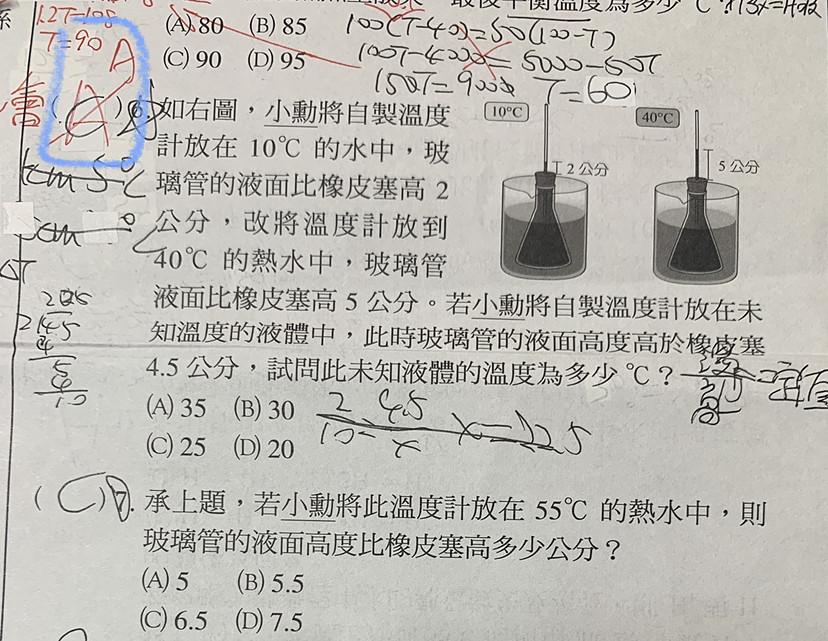 12T=108
T=90
A
(A) 80 (B) 85
(C) 90 (D) 95
100(T-40)=50(100-T)
100T-4000=5000-50T
150T=9000 T=60
( ) 6. 如右圖，小勳將自製溫度
計放在 10℃ 的水中，玻
璃管的液面比橡皮塞高 2
公分，改將溫度計放到
40℃ 的熱水中，玻璃管
液面比橡皮塞高 5 公分。若小勳將自製溫度計放在未
知溫度的液體中，此時玻璃管的液面高度高於橡皮塞
4.5 公分，試問此未知液體的溫度為多少 ℃？
(A) 35 (B) 30
(C) 25 (D) 20
10℃
2 公分
40℃
5 公分
會
ΔT
2 4.5
10 = x x=22.5
(C) 7. 承上題，若小勳將此溫度計放在 55℃ 的熱水中，則
玻璃管的液面高度比橡皮塞高多少公分？
(A) 5 (B) 5.5
(C) 6.5 (D) 7.5